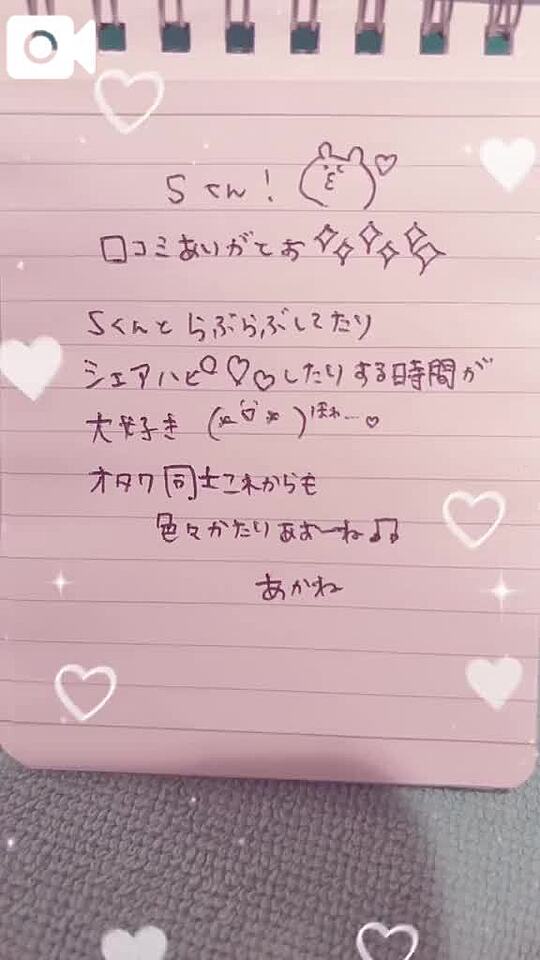 Sくん!
口コミありがとお
Sくんとらぶらぶしてたり
シェアハピ♡♡したりする時間が
大好き ( ) ほわー♡
オタク同士これからも
色々かたりあおーね♫
あかね